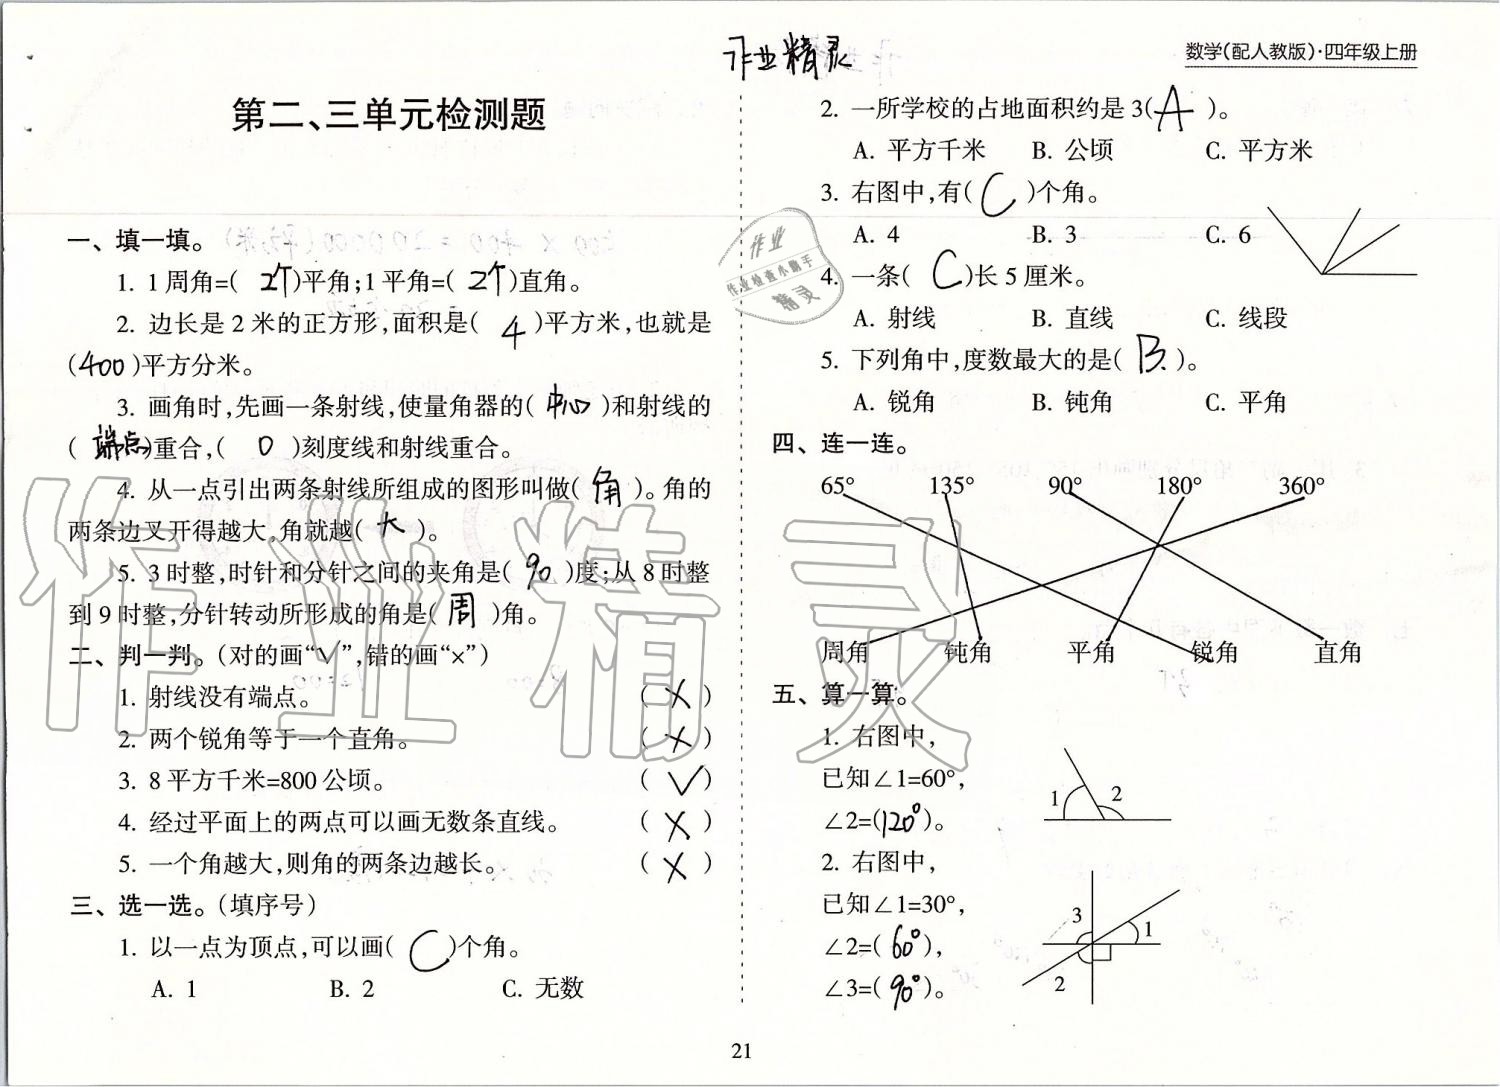 作业精灵
数学(配人教版)·四年级上册
第二、三单元检测题
一、填一填。
1. 1周角=( 2个 )平角;1平角=( 2个 )直角。
2. 边长是2米的正方形,面积是( 4 )平方米,也就是
( 400 )平方分米。
3. 画角时,先画一条射线,使量角器的( 中心 )和射线的
( 端点 )重合,( 0 )刻度线和射线重合。
4. 从一点引出两条射线所组成的图形叫做( 角 )。角的
两条边叉开得越大,角就越( 大 )。
5. 3时整,时针和分针之间的夹角是( 90 )度;从8时整
到9时整,分针转动所形成的角是( 周 )角。
二、判一判。(对的画“√”,错的画“×”)
1. 射线没有端点。 ( × )
2. 两个锐角等于一个直角。 ( × )
3. 8平方千米=800公顷。 ( √ )
4. 经过平面上的两点可以画无数条直线。 ( × )
5. 一个角越大,则角的两条边越长。 ( × )
三、选一选。(填序号)
1. 以一点为顶点,可以画( C )个角。
A. 1 B. 2 C. 无数
2. 一所学校的占地面积约是3( A )。
A. 平方千米 B. 公顷 C. 平方米
3. 右图中,有( C )个角。
A. 4 B. 3 C. 6
4. 一条( C )长5厘米。
A. 射线 B. 直线 C. 线段
5. 下列角中,度数最大的是( B. )。
A. 锐角 B. 钝角 C. 平角
四、连一连。
65° 135° 90° 180° 360°
周角 钝角 平角 锐角 直角
五、算一算。
1. 右图中,
已知∠1=60°,
∠2=(120°)。
1 2
2. 右图中,
已知∠1=30°,
∠2=( 60° ),
∠3=( 90° )。
3 1
2
21
作业
作业检查小助手
精灵
作业精灵